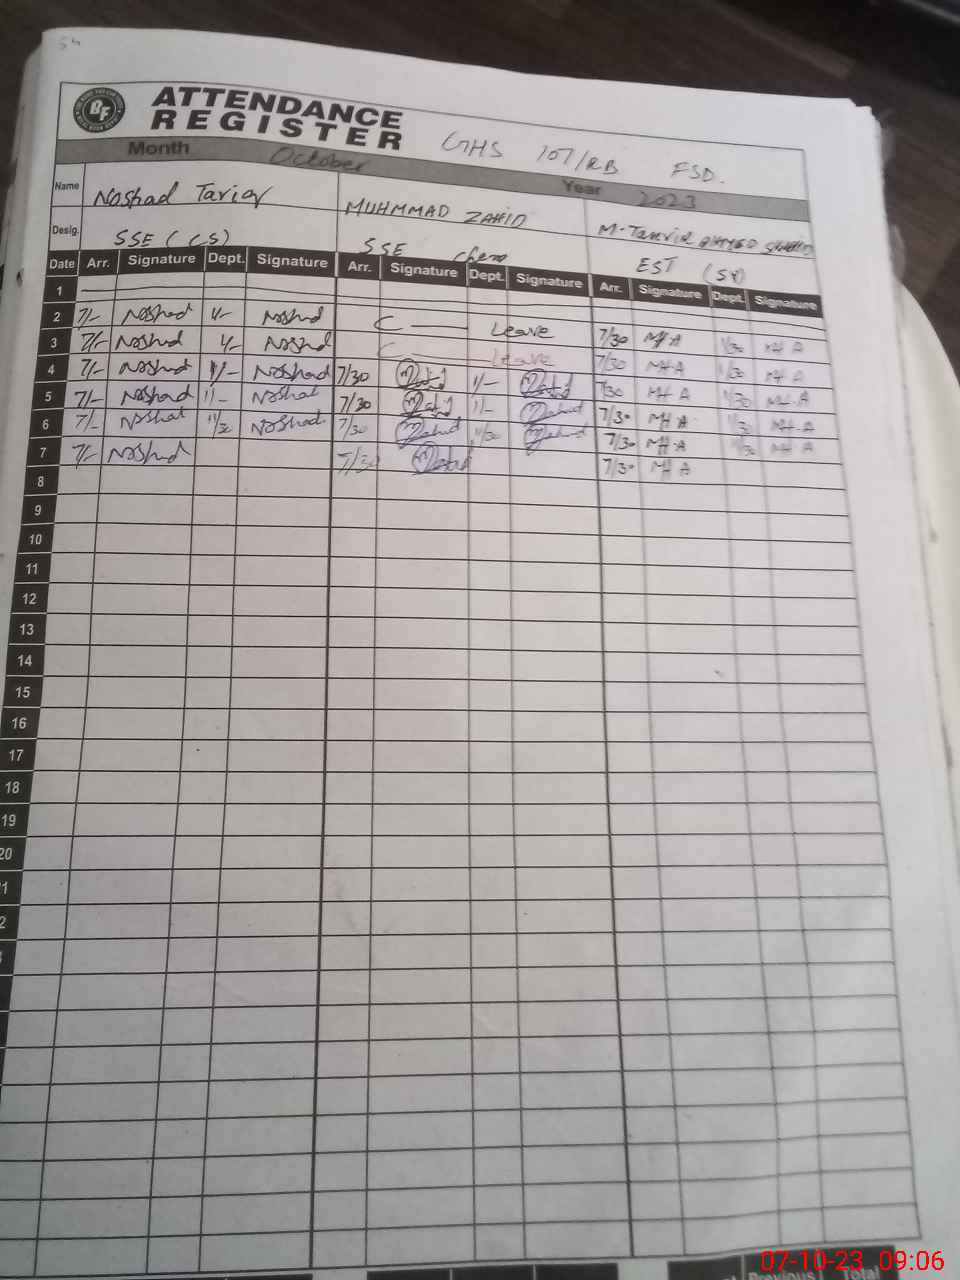 BF
ATTENDANCE
REGISTER
GHS 107/RB FSD.
Month October Year 2023
Name Noshad Tariq MUHMMAD ZAHID M-Tanvir
Desig. SSE (CS) SSE Chem EST
Date Arr. Signature Dept. Signature Arr. Signature Dept. Signature Arr. Signature Dept. Signature
1
2 7/- Noshad 1/- Noshad Leave 7/30 MHA 1/30 MHA
3 7/- Noshad 1/- Noshad Leave 7/30 MHA 1/30 MHA
4 7/- Noshad 1/- Noshad 7/30 Zahid 1/- Zahid 7/30 MHA 1/30 MHA
5 7/- Noshad 1/- Noshad 7/30 Zahid 1/- Zahid 7/30 MHA 1/30 MHA
6 7/- Noshad 11/30 Noshad 7/30 Zahid 11/30 Zahid 7/30 MHA 11/30 MHA
7 7/- Noshad 7/30 Zahid 7/30 MHA
8
9
10
11
12
13
14
15
16
17
18
19
20
Previous Total
07-10-23 09:06